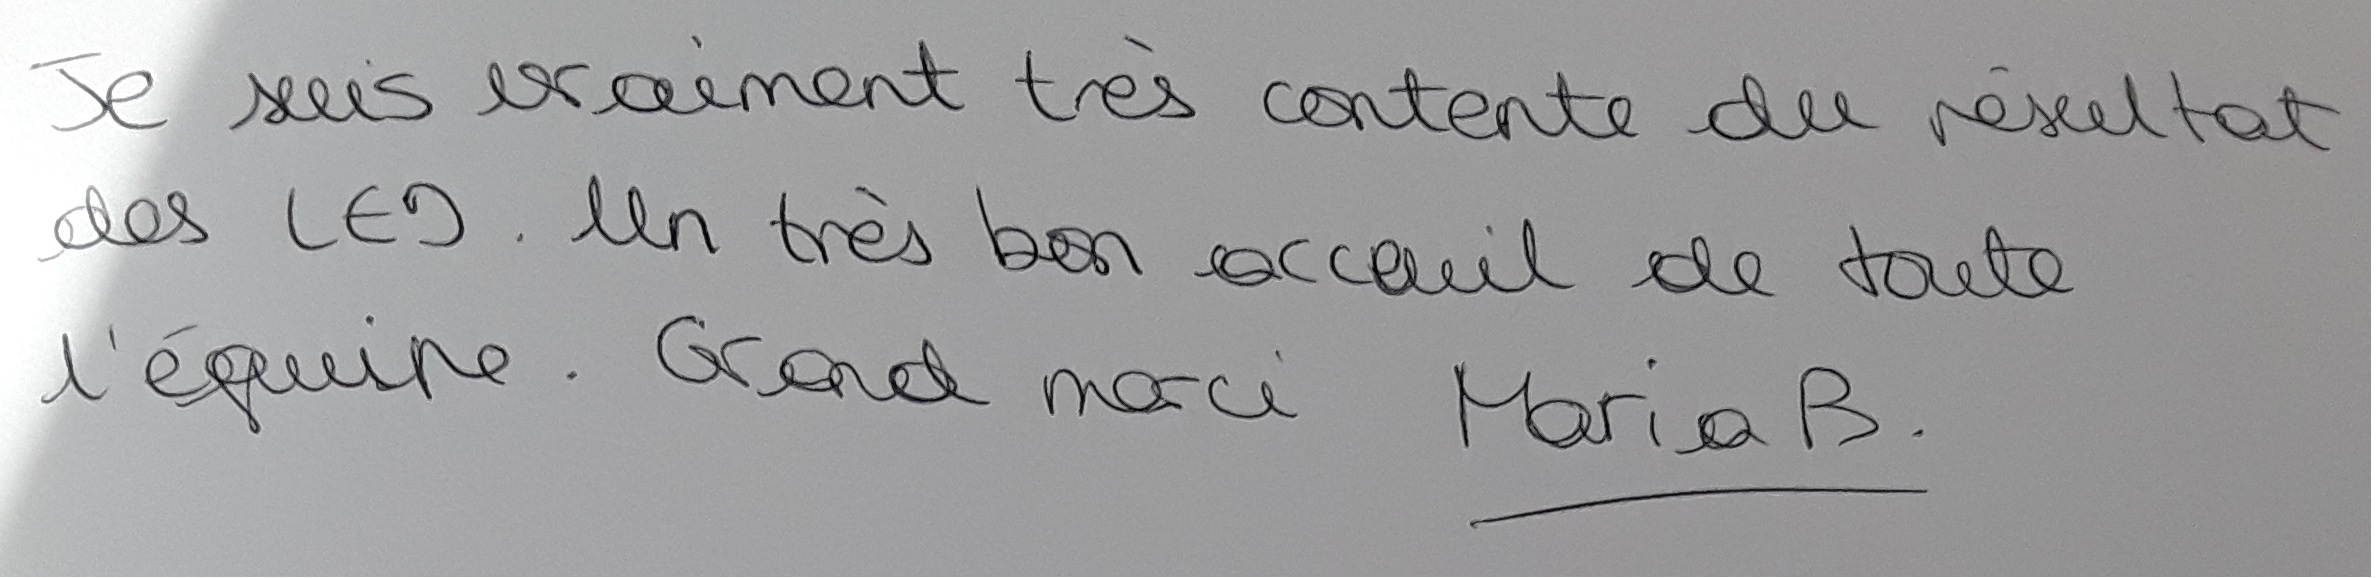 Je suis vraiment très contente du résultat
des LED. Un très bon acceuil de toute
l'équipe. Grand merci Maria B.